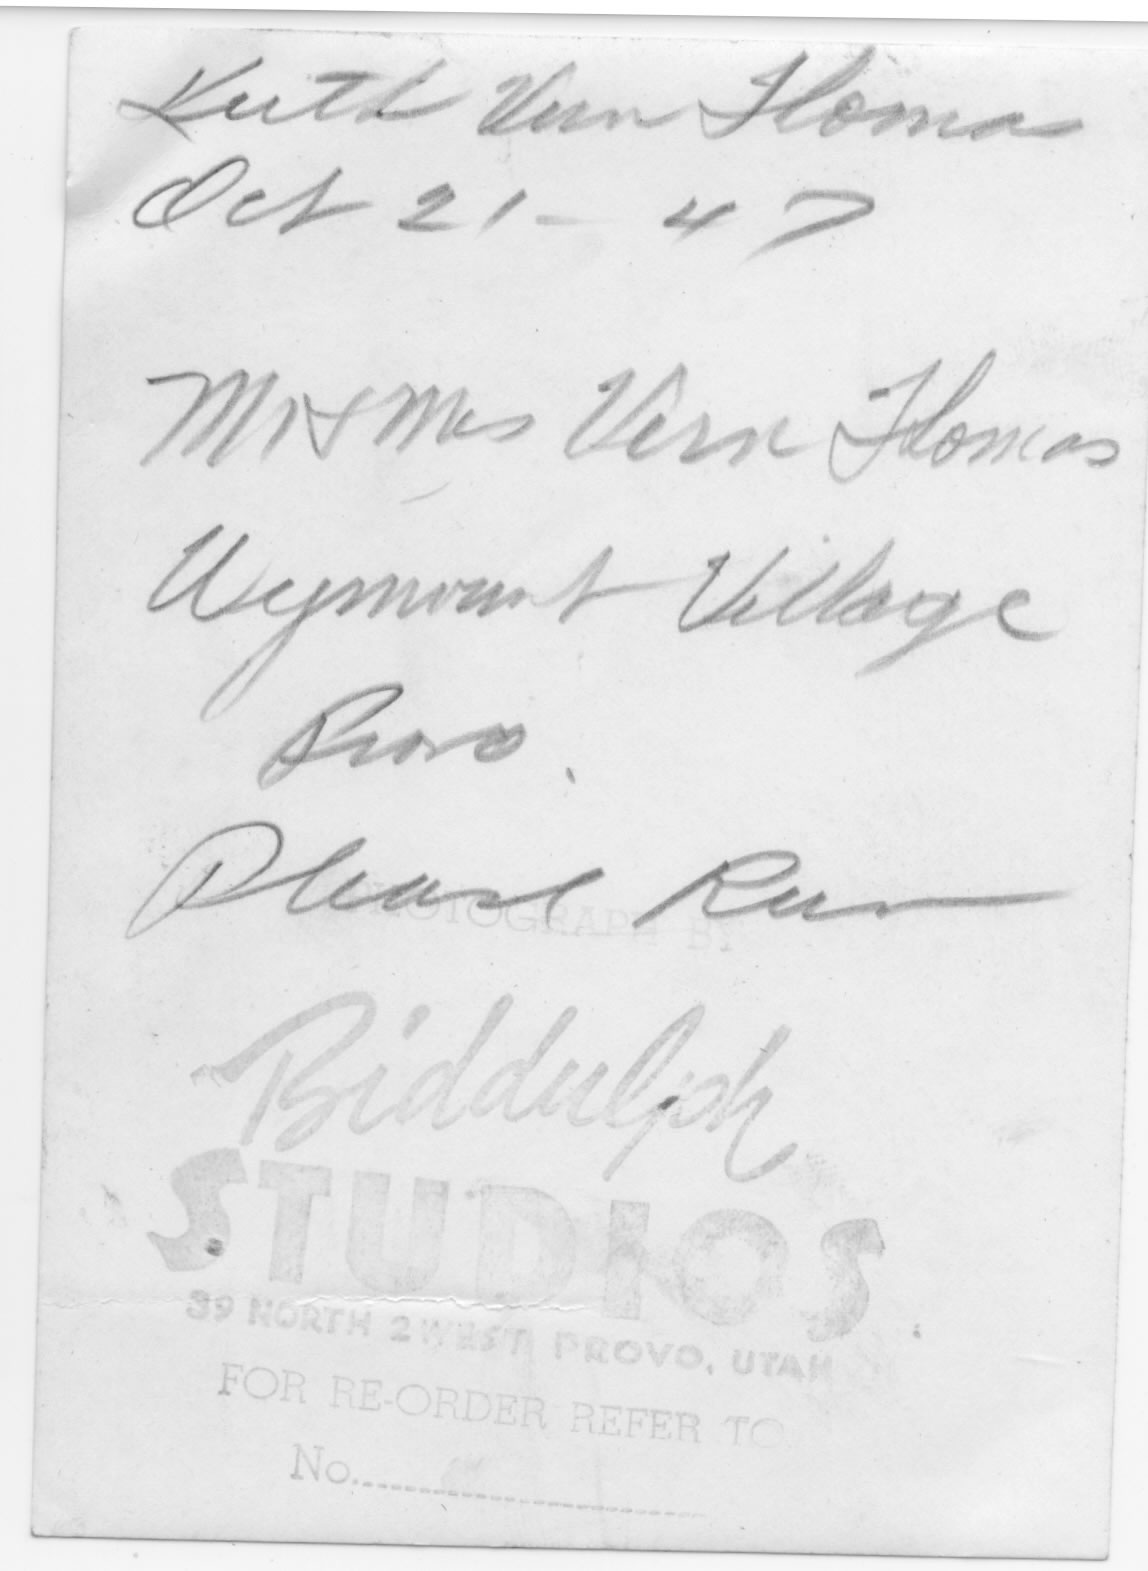 Keith Vern Thomas
Oct 21 - 47
Mr & Mrs Vern Thomas
Wymount Village
Provo.
Please Run
PHOTOGRAPH BY
Biddulph
STUDIOS
39 NORTH 2 WEST PROVO, UTAH
FOR RE-ORDER REFER TO
No.